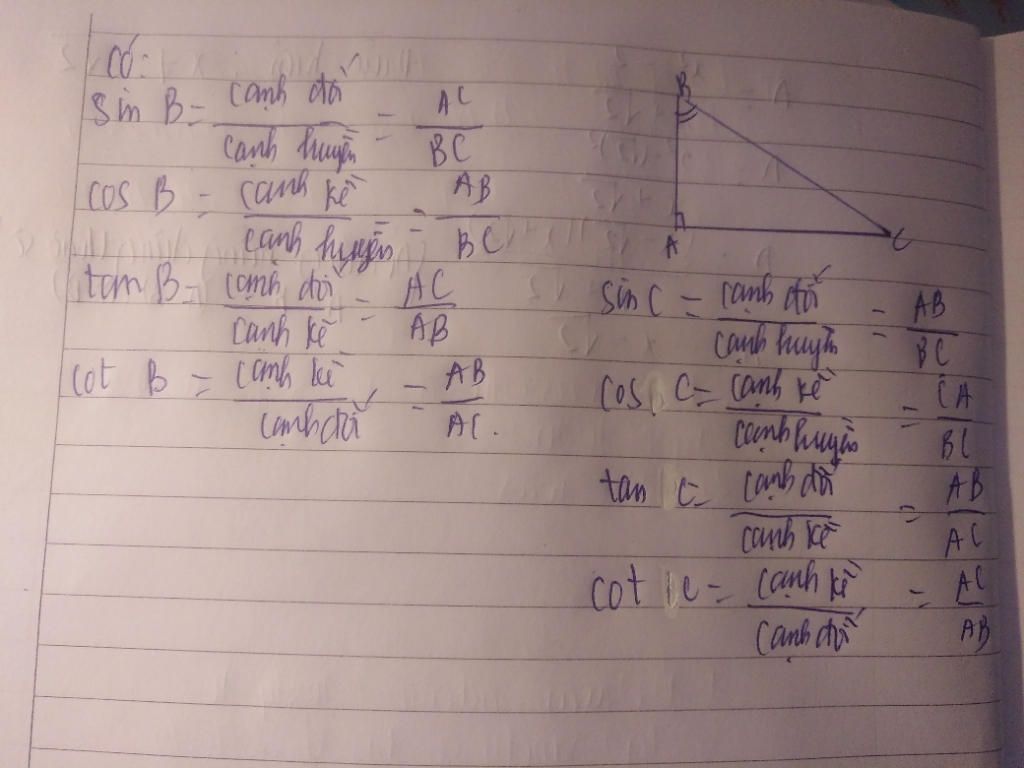 Có:
sin B = cạnh đối / cạnh huyền = AC / BC
cos B = cạnh kề / cạnh huyền = AB / BC
tan B = cạnh đối / cạnh kề = AC / AB
cot B = cạnh kề / cạnh đối = AB / AC.
B
A
C
sin C = cạnh đối / cạnh huyền = AB / BC
cos C = cạnh kề / cạnh huyền = CA / BC
tan C = cạnh đối / cạnh kề = AB / AC
cot C = cạnh kề / cạnh đối = AC / AB